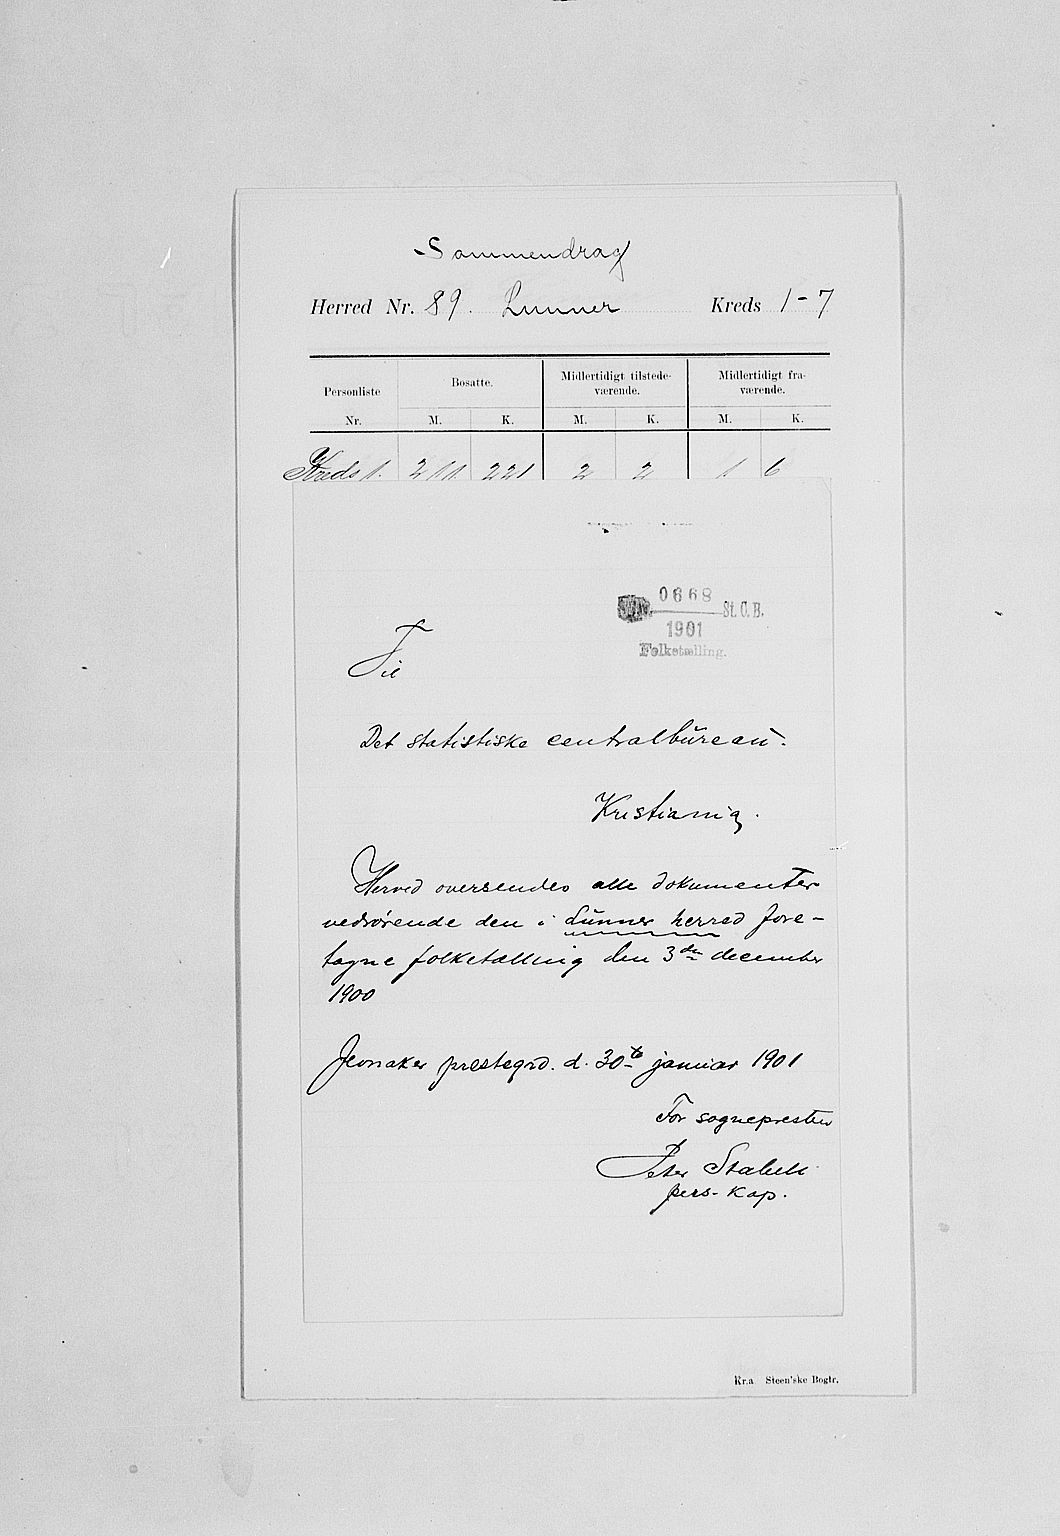 Sammendrag
Herred Nr. 89. Lunner Kreds 1-7
Personliste Nr. Bosatte. Midlertidigt tilstedeværende. Midlertidigt fraværende.
M. K. M. K. M. K.
Kreds 1. 211 221 2 2 1 6
0668 St. C. B.
1901
Folketælling.
Til
Det statistiske centralbureau.
Kristiania.
Herved oversendes alle dokumenter
vedrørende den i Lunner herred fore-
tagne folketælling den 3de december
1900
Jevnaker prestegrd. d. 30te januar 1901
For sognepresten
Peter Stabell
pers. kap.
Kr.a Steen'ske Bogtr.